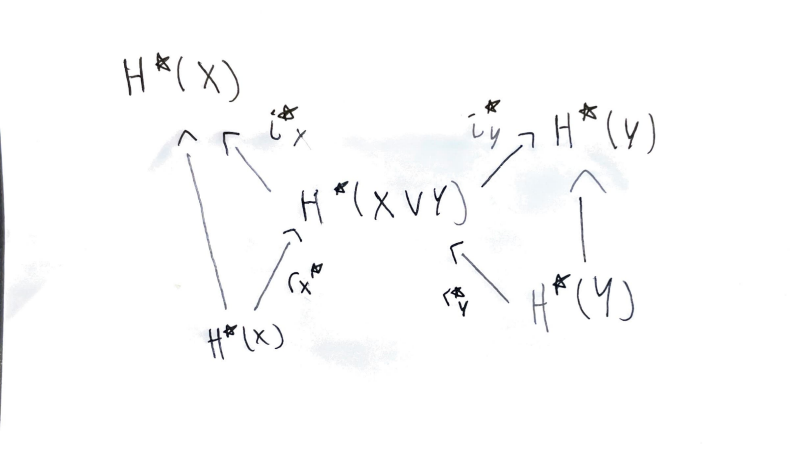 H*(X)
i*x
i*y
H*(Y)
H*(X∨Y)
r*x
r*y
H*(Y)
H*(X)